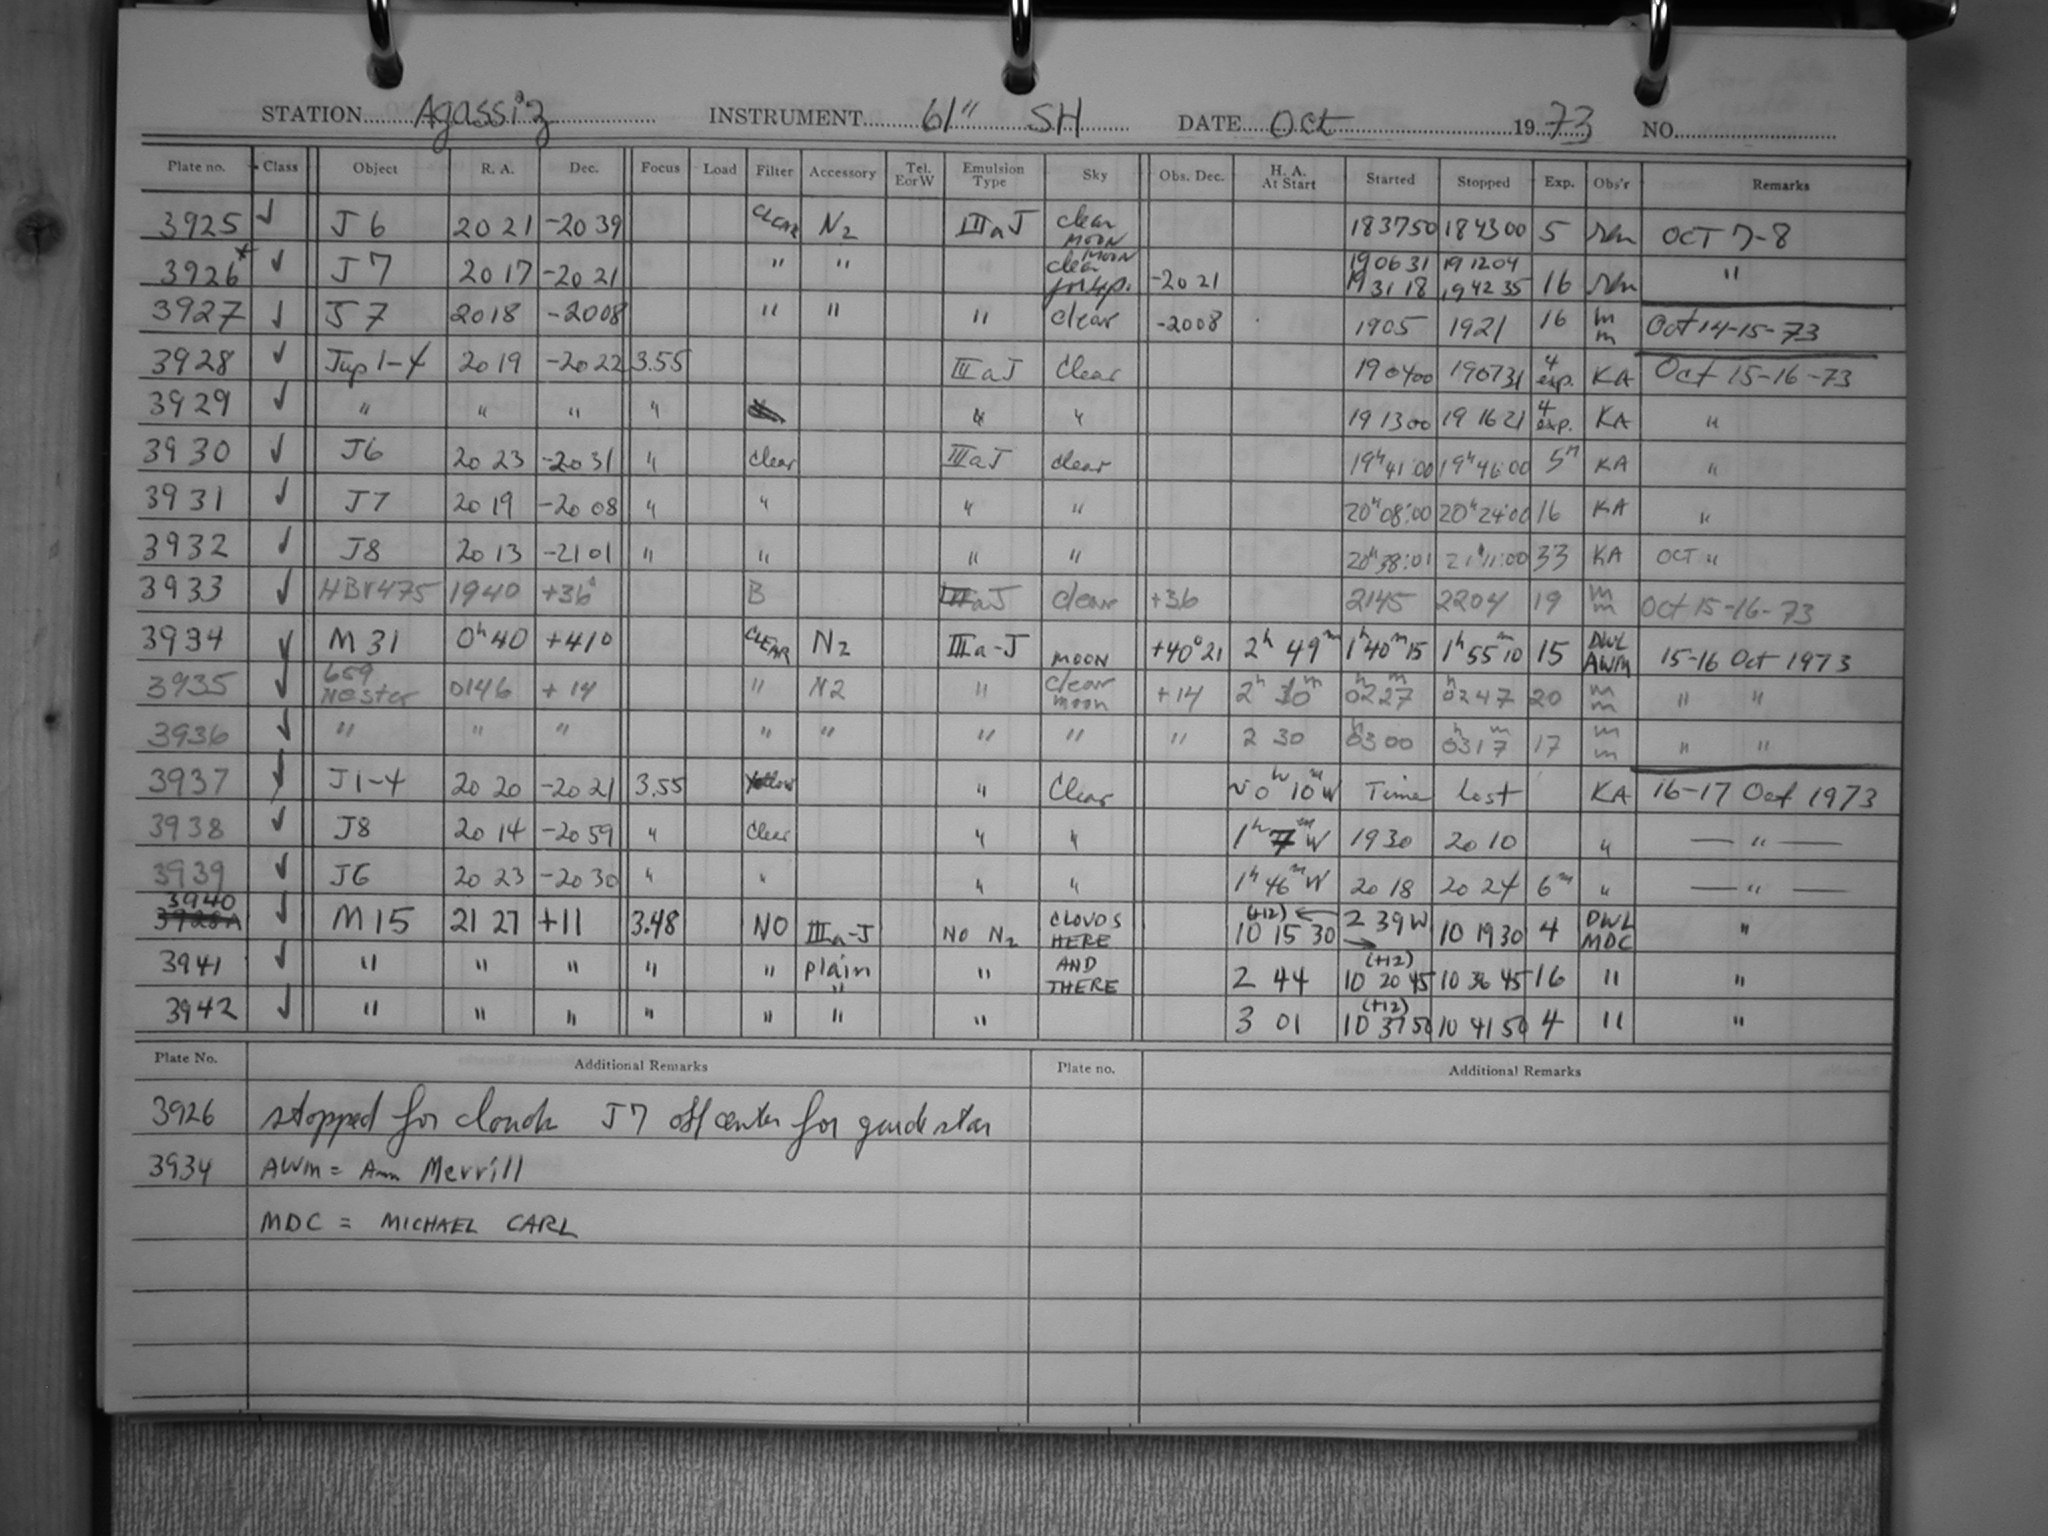 STATION Agassiz INSTRUMENT 61" SH DATE Oct 19 73 NO.
Plate no. Class Object R. A. Dec. Focus Load Filter Accessory Tel. E or W Emulsion Type Sky Obs. Dec. H. A. At Start Started Stopped Exp. Obs'r Remarks
3925 ✓ J6 20 21 -20 39 CLEAR N2 IIIaJ clear MOON 18 37 50 18 43 00 5 OCT 7-8
3926* ✓ J7 20 17 -20 21 " " clear MOON -20 21 19 06 31 19 12 04 19 31 18 19 42 35 16 "
3927 ✓ J7 20 18 -20 08 " " " clear -2008 1905 1921 16 m m Oct 14-15-73
3928 ✓ Jup 1-4 20 19 -20 22 3.55 IIIaJ Clear 19 04 00 19 07 31 4 exp. KA Oct 15-16-73
3929 ✓ " " " " " " 19 13 00 19 16 21 4 exp. KA "
3930 ✓ J6 20 23 -20 31 " Clear IIIaJ clear 19h 41:00 19h 46:00 5m KA "
3931 ✓ J7 20 19 -20 08 " " " " 20h 08:00 20h 24:00 16 KA "
3932 ✓ J8 20 13 -21 01 " " " " 20h 38:01 21h 11:00 33 KA OCT "
3933 ✓ HBV475 1940 +36° B IIIaJ clear +36 2145 2204 19 m m Oct 15-16-73
3934 ✓ M 31 0h 40 +41° CLEAR N2 IIIa-J MOON +40° 21 2h 49m 1h 40m 15 1h 55m 10 15 DWL AWM 15-16 Oct 1973
3935 ✓ 659 0146 +14 " N2 " clear moon +14 2h 30m 02h 27m 02h 47 20 m m " "
3936 ✓ " " " " " " " " 2 30 03h 00 03h 17m 17 m m " "
3937 ✓ J1-4 20 20 -20 21 3.55 Yellow " Clear ~0h 10m W Time Lost KA 16-17 Oct 1973
3938 ✓ J8 20 14 -20 59 " Clear " " 1h 7m W 19 30 20 10 " — " —
3939 ✓ J6 20 23 -20 30 " " " " 1h 46m W 20 18 20 24 6m " — " —
3940 3928A ✓ M 15 21 27 +11 3.48 NO IIIa-J NO N2 CLOUDS HERE (+12) 10 15 30 2 39 W 10 19 30 4 DWL MDC "
3941 ✓ " " " " " plain " AND THERE 2 44 (+12) 10 20 45 10 36 45 16 " "
3942 ✓ " " " " " " " " 3 01 (+12) 10 37 50 10 41 50 4 " "
Plate No. Additional Remarks Plate no. Additional Remarks
3926 stopped for clouds J7 off center for guide star
3934 AWM = Ann Merrill
MDC = MICHAEL CARL